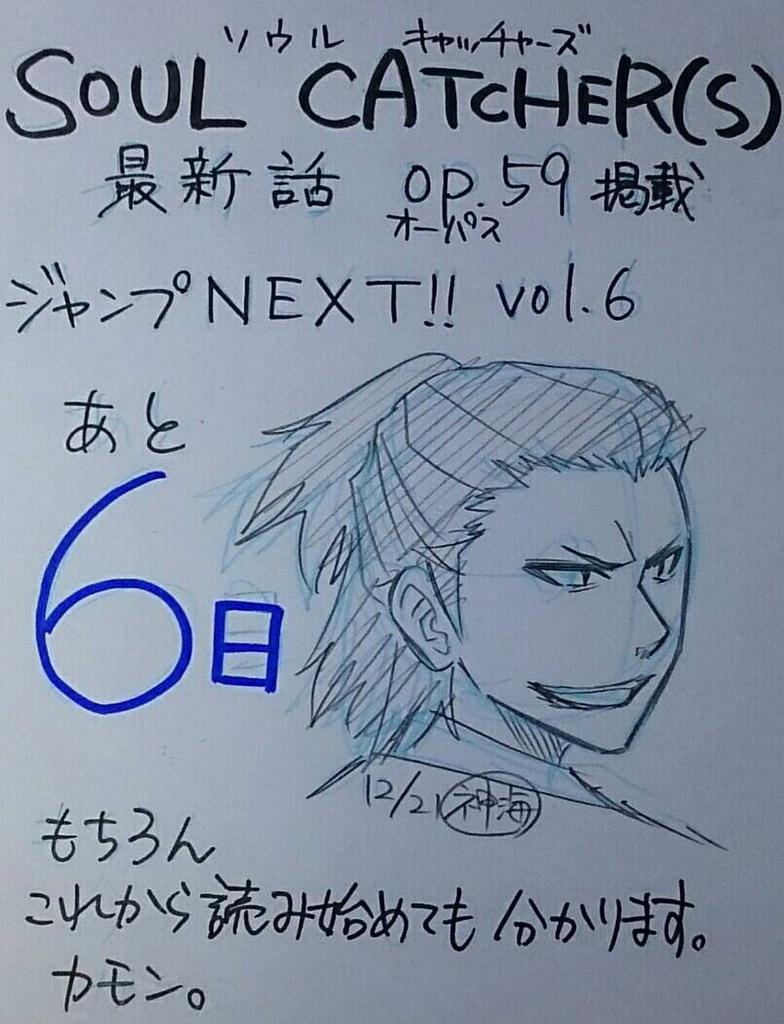 ソウル キャッチャーズ
SOUL CATCHER(S)
最新話 op.59 掲載
オーパス
ジャンプNEXT!! vol.6
あと
6日
12/21 神海
もちろん
これから読み始めても分かります。
カモン。